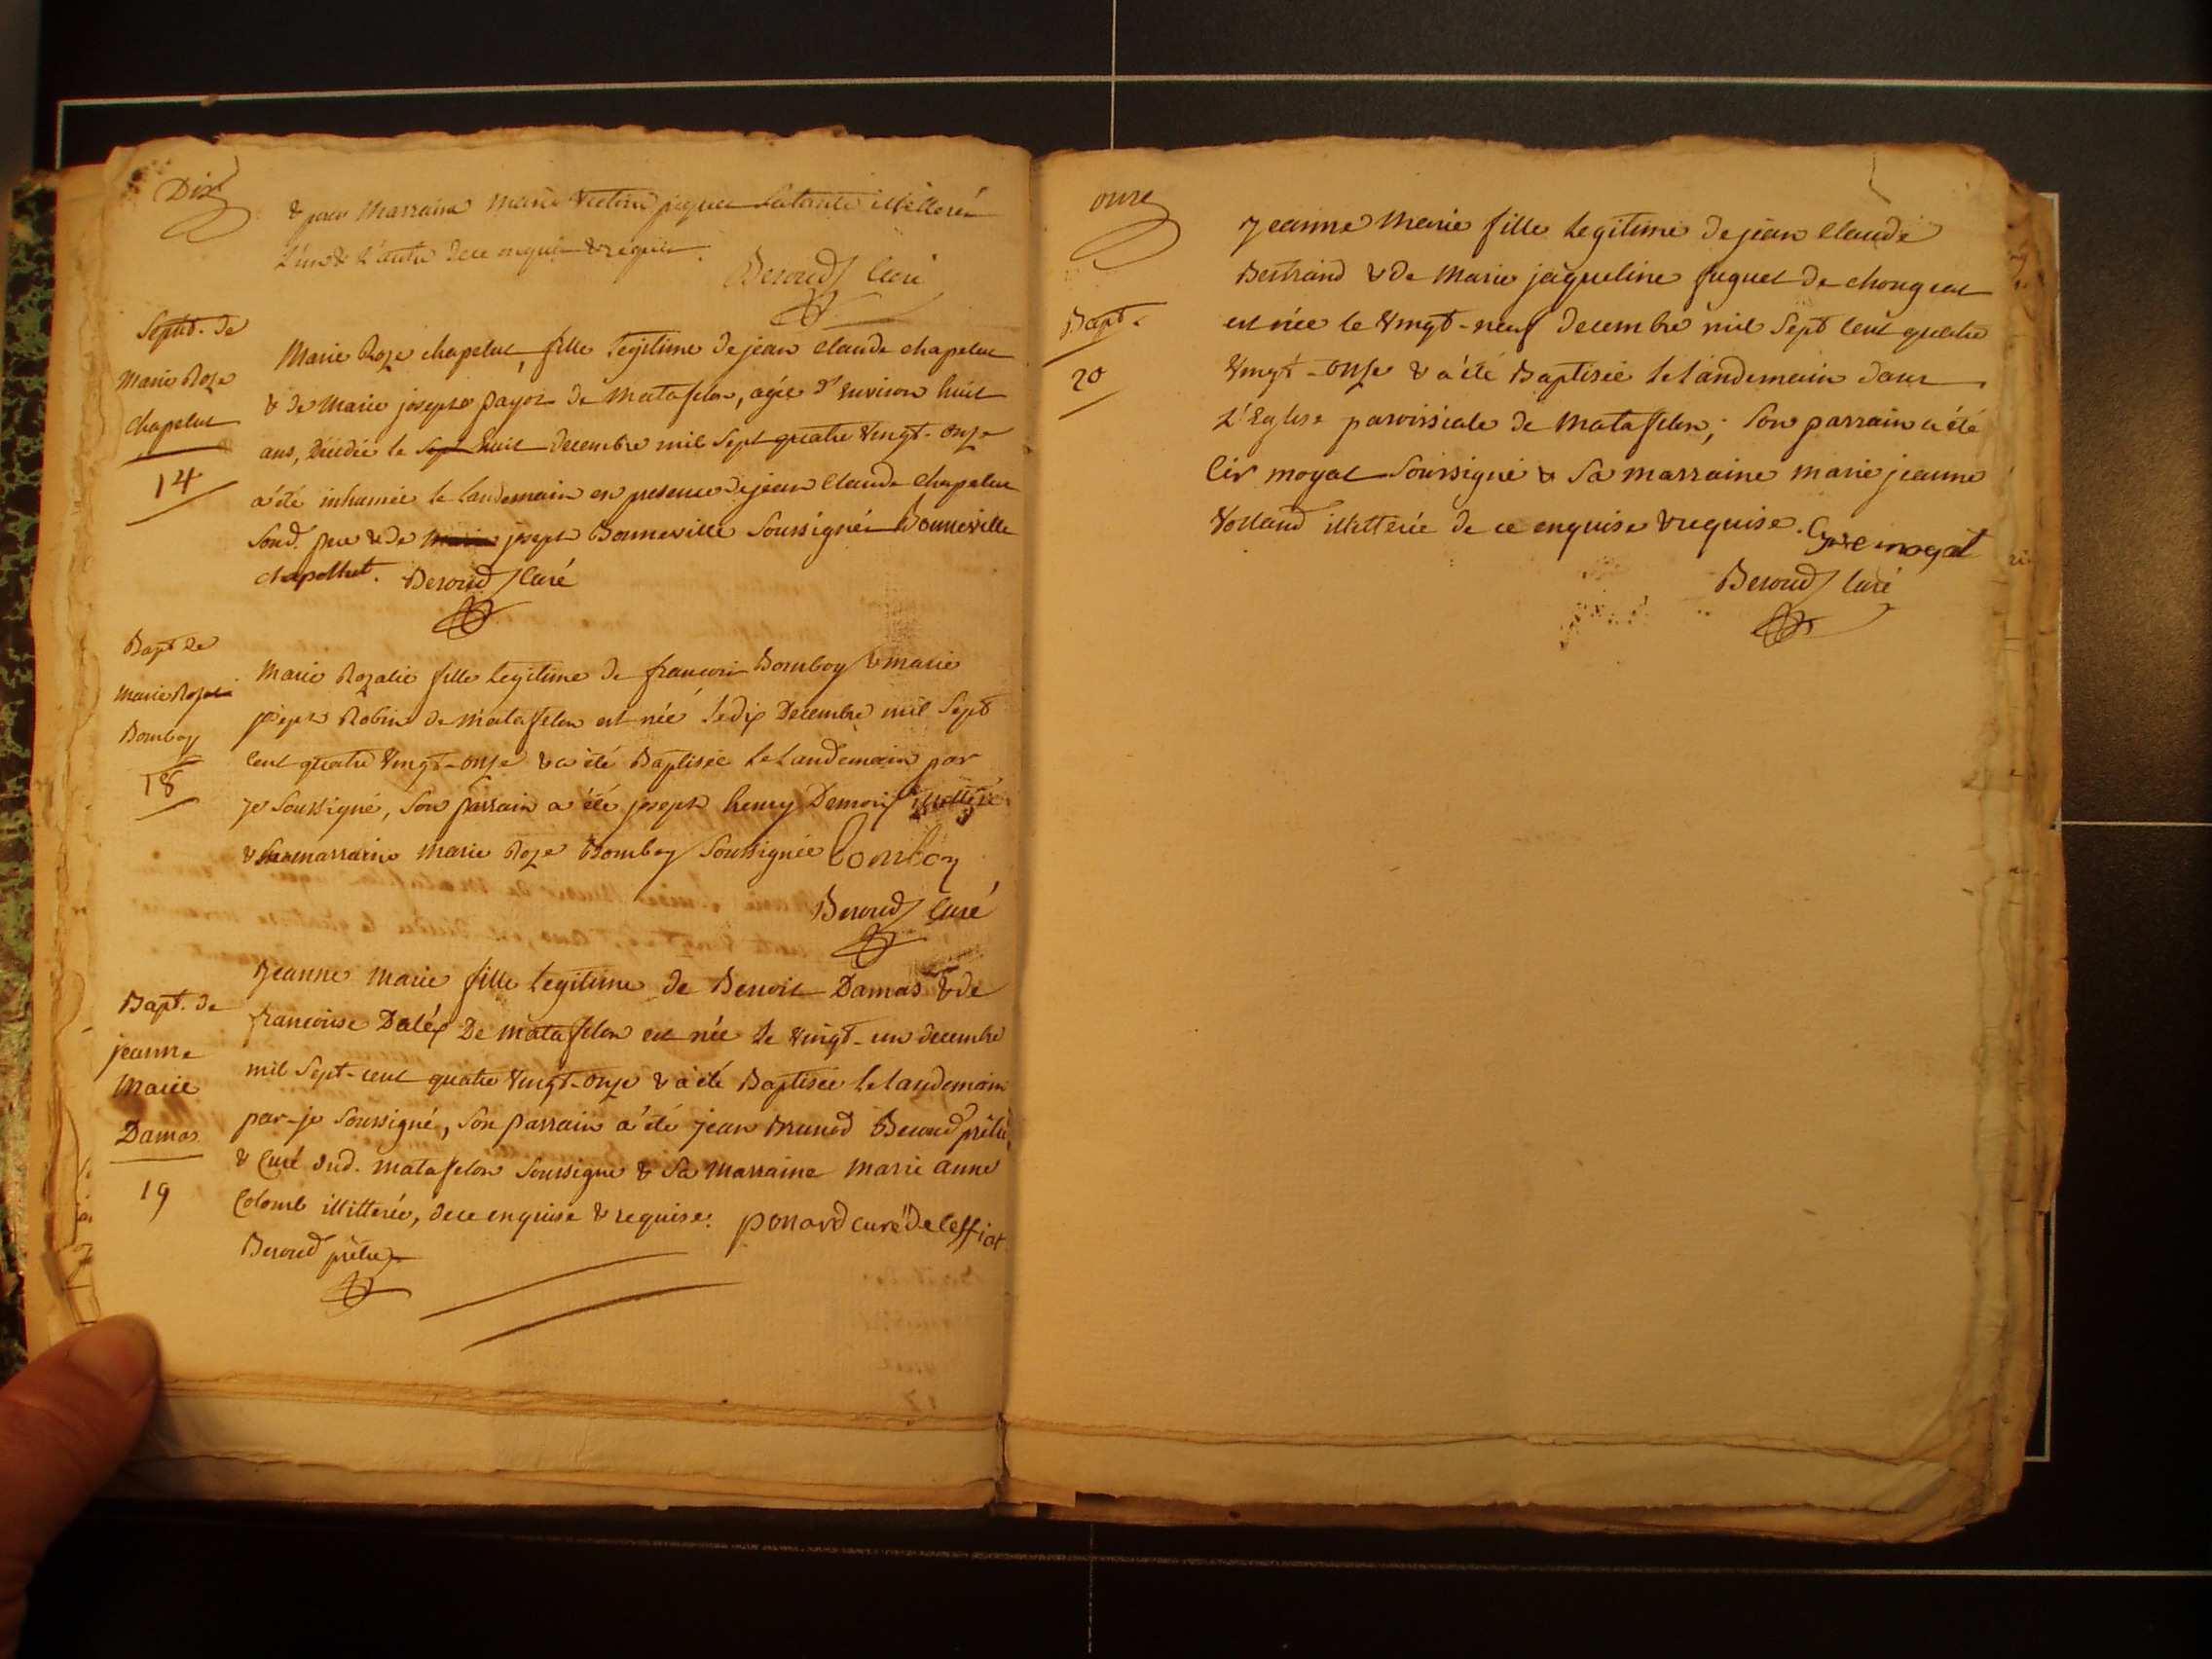 Dix
& pour Marraine Marie Victoire Satante illitterés
L'un & L'autre de ce enquis & requis.
Beroud Curé
Sepult. de
Marie Roze
Chapelut
14
Marie Roze chapelut, fille legitime de jean claude chapelut
& de Marie josephe payoz de Matafelon, agée d'environ huit
ans, décédée le sept huit decembre mil Sept quatre Vingt-onze
a été inhumée le landemain en presence de jean Claude Chapelut
Sond. pere & de Marie joseph Bonneville Soussignés Bonneville
chapellut. Beroud Curé
Bapt de
Marie Rozalie
Bomboy
18
Marie Rozalie fille legitime de francois Bomboy & marie
josephe Robin de Matafelon est née le dix Decembre mil Sept
Cent quatre Vingt-onze & a été Baptisée Le Landemain par
je Soussigné, Son parrain a été joseph henry Demoiz illitteré
& Sa marraine Marie Roze Bomboy Soussignée bomboy
Beroud Curé
Bapt. de
jeanne
Marie
Damas
19
Jeanne Marie fille legitime de Benoit Damas & de
francoise Daléz De matafelon est née Le Vingt-un decembre
mil Sept-cent quatre Vingt-onze & a été Baptisée le landemain
par-je Soussigné, Son parrain a été jean Brunod Beroud prêtre,
& Curé dud. matafelon Soussigne & Sa Marraine Marie anne
Colomb illitterée, de ce enquise & requise. ponard curé de Ceffiat
Beroud prêtre
onze
Bapt.
20
Jeanne Marie fille Legitime de jean Claude
Bertrand & de Marie jaqueline fuguet de chougeat
est née le Vingt-neuf decembre mil Sept Cent quatre
Vingt-onze & a été Baptisée Le Landemain dans
L'Eglise paroissiale de Matafelon; Son parrain a été
Cir mogat Soussigné & Sa marraine marie jeanne
Volland illitterée de ce enquise & requise. Cyre mogat
Beroud Curé